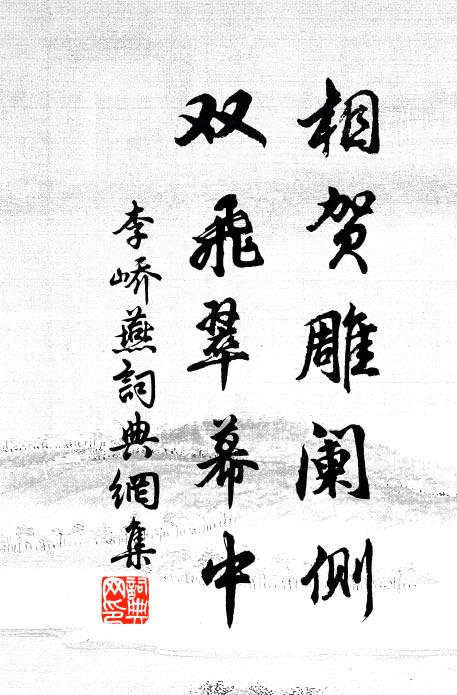 相贺雕阑侧
双飞翠幕中
李峤燕詞典網集
詞典